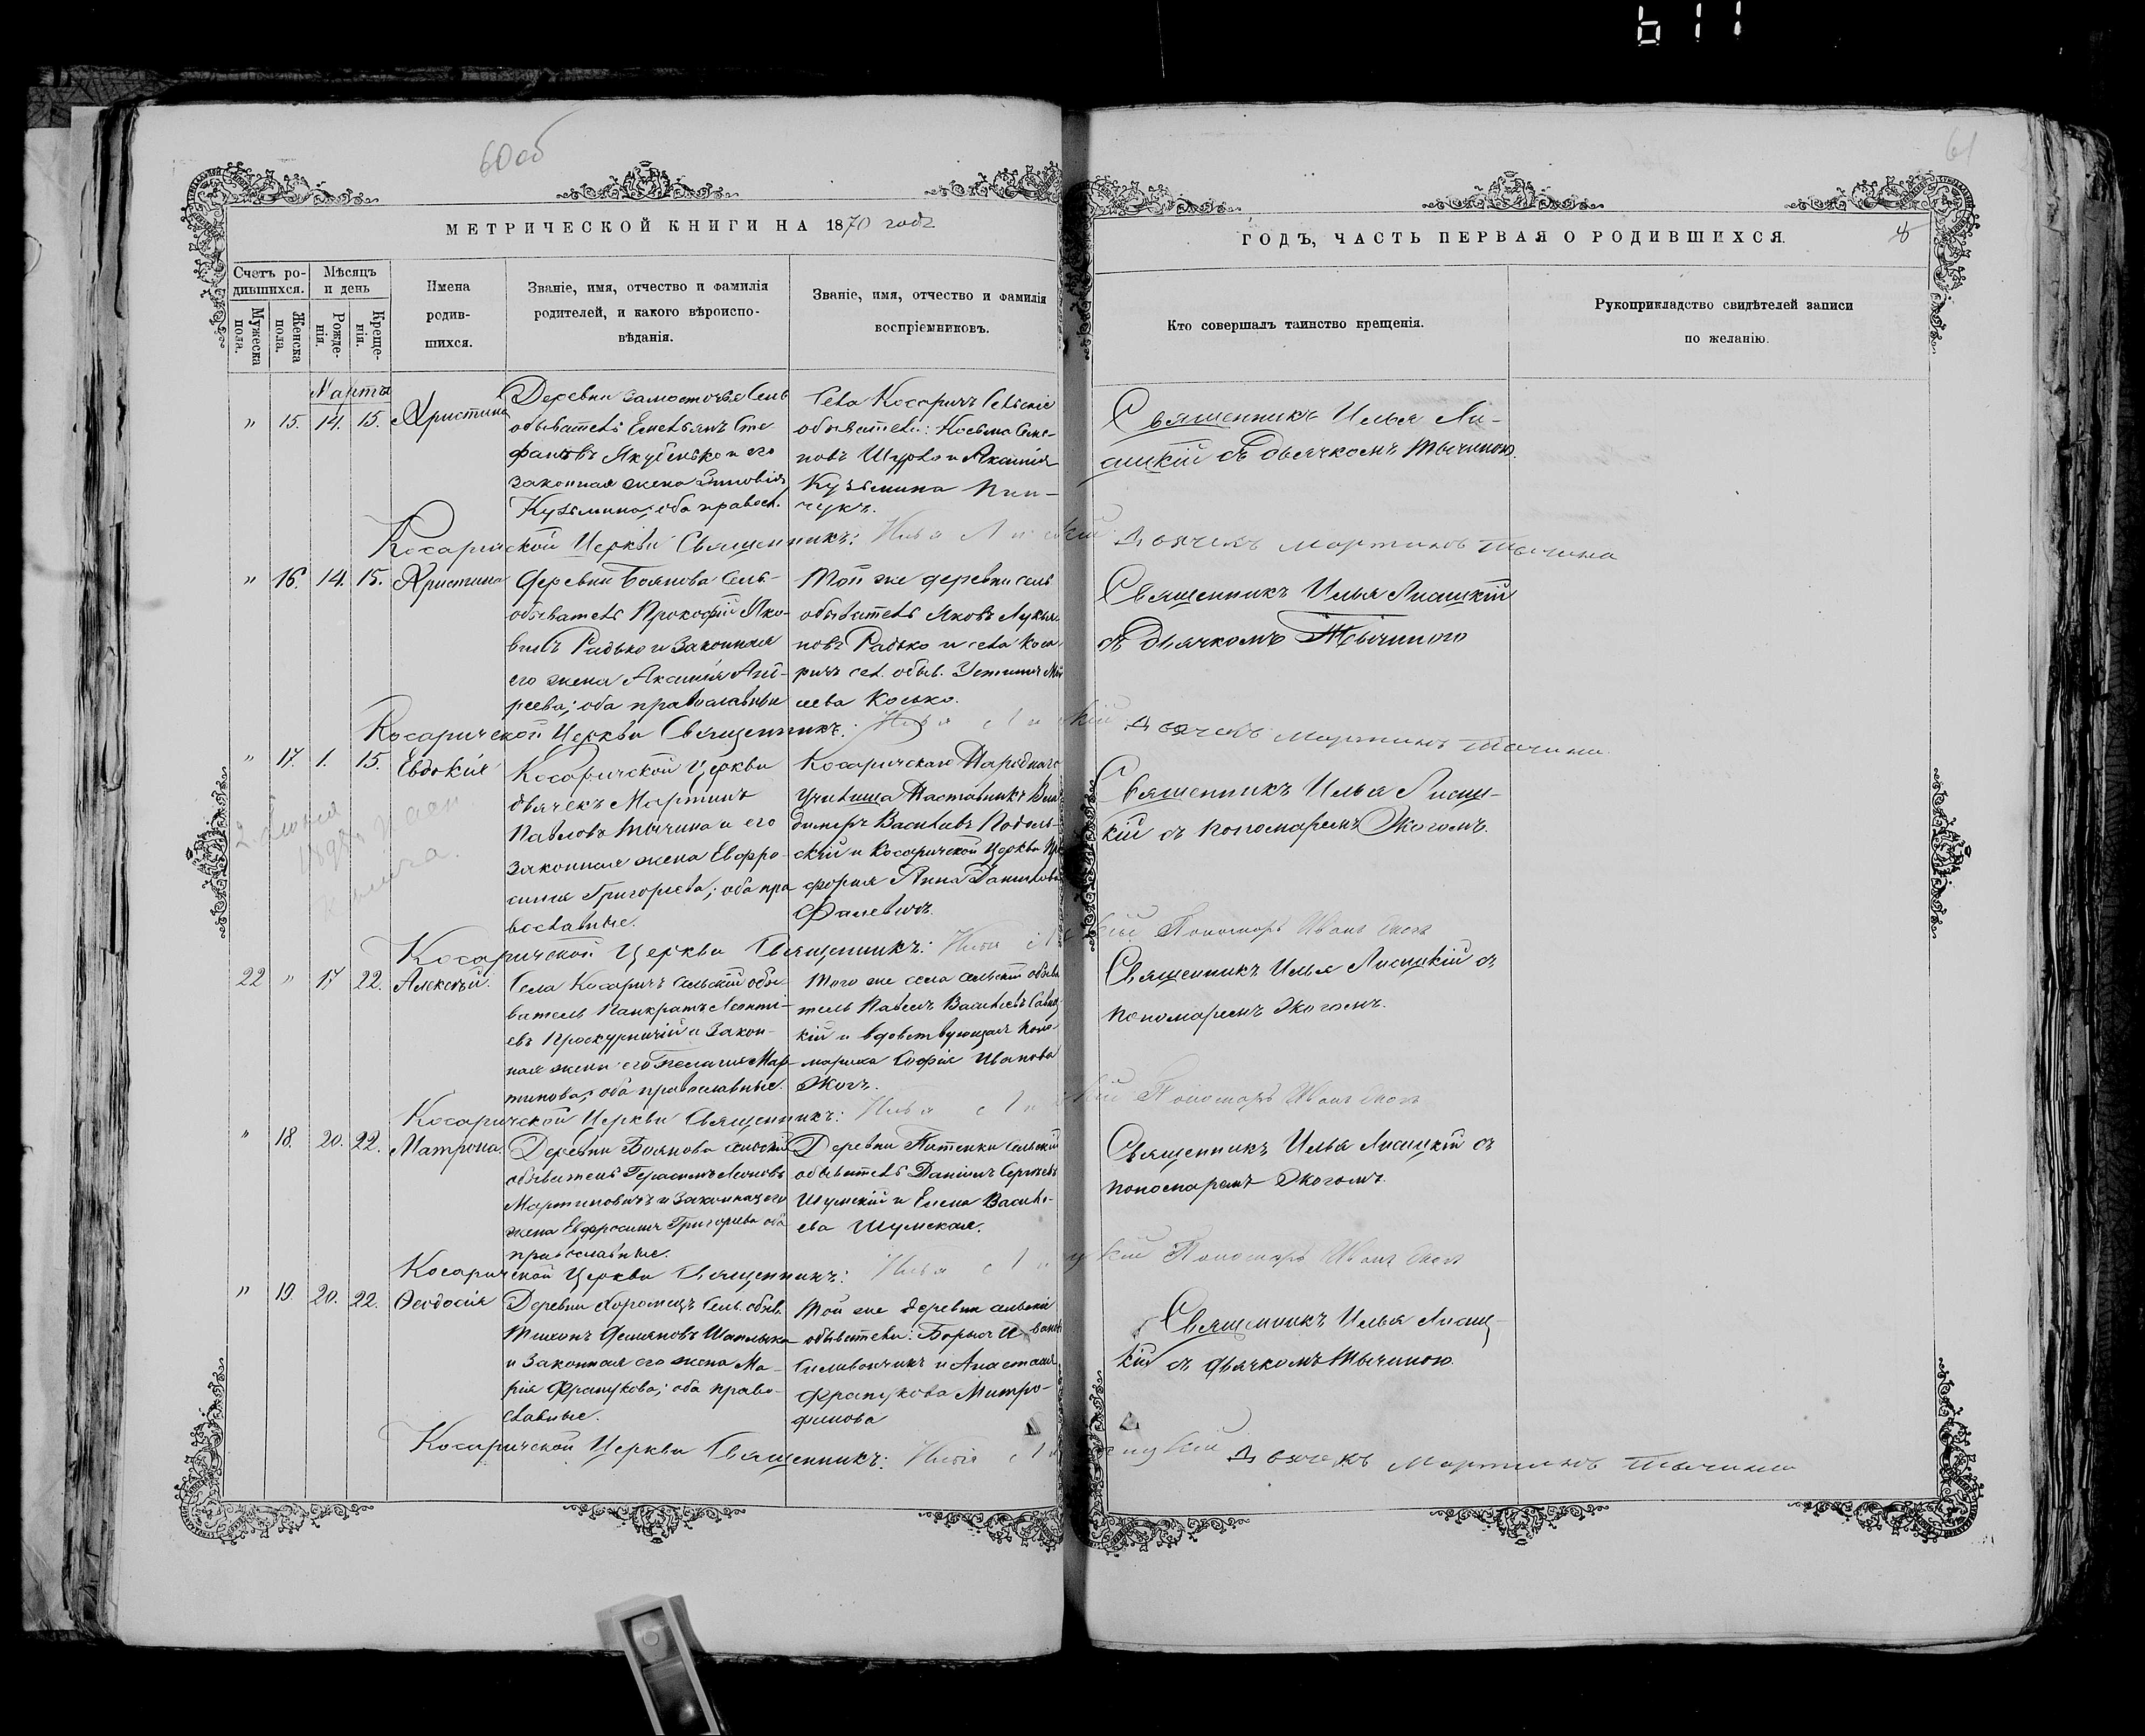 611
60об
61
МЕТРИЧЕСКОЙ КНИГИ НА 1870 годъ
ГОДЪ, ЧАСТЬ ПЕРВАЯ О РОДИВШИХСЯ.
8
Счетъ ро-
дившихся.
Мужеска
пола.
Женска
пола.
Мѣсяцъ
и день
Рожде-
нія.
Креще-
нія.
Имена
родив-
шихся.
Званіе, имя, отчество и фамилія
родителей, и какого вѣроиспо-
вѣданія.
Званіе, имя, отчество и фамилія
воспріемниковъ.
Кто совершалъ таинство крещенія.
Рукоприкладство свидѣтелей записи
по желанію.
Марта
" 15. 14. 15. Христина
Деревни Самосточья Сель
обыватель Емельянъ Сте
фановъ Якубенько и его
законная жена Зиновія
Кузьмина; оба правосл.
Села Косаричъ Сельскіе
обыватели: Косьма Семе-
новъ Шурко и Акилина
Кузьмина Пин-
чукъ.
Священникъ Илья Ли-
сицкій съ дьячкомъ Тычиною.
Косаричской Церкви Священникъ: Илья Лисицкій Дьячекъ Мартинъ Тычина
" 16. 14. 15. Христина
Деревни Боянова Сель-
обыватель Прокофій Яко-
влевъ Радько и Законная
его жена Акилина Анд-
реева; оба православные
Той же деревни сель
обыватель Яковъ Лукья
новъ Радько и села Коса
ричъ сел. обыв. Устинія Мои
сеева Косько.
Священникъ Илья Лисицкій
съ Дьячкомъ Тычиною
Косаричской Церкви Священникъ: Илья Лисицкій Дьячекъ Мартинъ Тычина
" 17. 1. 15. Евдокія
Косаричской Церкви
дьячекъ Мартинъ
Павловъ Тычина и его
Законная жена Евфро-
синія Григорьева; оба пра
вославные.
Косаричскаго Народнаго
Училища Наставникъ Вла
димиръ Васильевъ Подоль-
скій и Косаричской Церкви Про
сфорня Анна Данилова
Фалевичъ.
Священникъ Илья Лисиц-
кій съ Пономаремъ Жогомъ.
Косаричской Церкви Священникъ: Илья Лисицкій Пономарь Иванъ Жогъ
22 " 17 22. Алексѣй.
Села Косаричъ сельскій обы-
ватель Панкратъ Леонти-
евъ Проскурничій и Закон-
ная жена его Пелагія Мар
тинова; оба православные.
Того же села сельскій обыва
тель Павелъ Васильевъ Савиц
кій и вдовствующая поно-
марша Софія Иванова
Жогъ.
Священникъ Илья Лисицкій съ
пономаремъ Жогомъ.
Косаричской Церкви Священникъ: Илья Лисицкій Пономарь Иванъ Жогъ
" 18. 20. 22. Матрона.
Деревни Боянова сельскій
обыватель Герасимъ Леоновъ
Мартиновичъ и Законная его
жена Евфросинія Григорьева оба
православные.
Деревни Патенки Сельскій
обыватель Даніилъ Сергѣевъ
Шумскій и Елена Василь-
ева Шумская.
Священникъ Илья Лисицкій съ
пономаремъ Жогомъ.
Косаричской Церкви Священникъ: Илья Лисицкій Пономарь Иванъ Жогъ
" 19. 20. 22. Ѳеодосія
Деревни Хоромецъ Сель. обыв.
Тихонъ Демяновъ Шаплыко
и Законная его жена Ма-
рія Францкова; оба право-
славные.
Той же деревни сельскіе
обыватели: Борисъ Ивановъ
Силивончикъ и Анастасія
Францкова Митро-
фанова
Священникъ Илья Лисиц-
кій съ дьячкомъ Тычиною
Косаричской Церкви Священникъ: Илья Лисицкій Дьячекъ Мартинъ Тычина